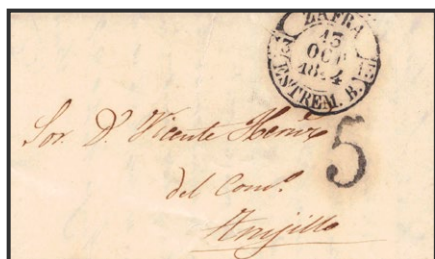 ZAFRA
13
OCT
1844
ESTREM. B.
5
Sor. Dn. Vicente Hernz
del Como.
Trujillo